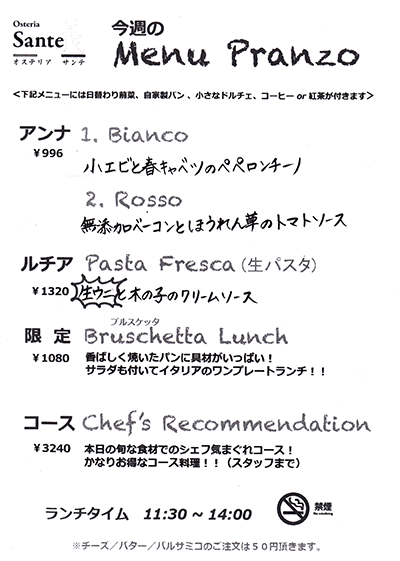 Osteria
Sante
オステリア サンテ
今週の
Menu Pranzo
<下記メニューには日替わり前菜、自家製パン、小さなドルチェ、コーヒー or 紅茶が付きます>
アンナ 1. Bianco
¥996
小エビと春キャベツのペペロンチーノ
2. Rosso
無添加ベーコンとほうれん草のトマトソース
ルチア Pasta Fresca (生パスタ)
¥1320 生ウニと木の子のクリームソース
ブルスケッタ
限 定 Bruschetta Lunch
¥1080 香ばしく焼いたパンに具材がいっぱい！
サラダも付いてイタリアのワンプレートランチ！！
コース Chef's Recommendation
¥3240 本日の旬な食材でのシェフ気まぐれコース！
かなりお得なコース料理！！（スタッフまで）
ランチタイム 11:30 ~ 14:00
禁煙
No smoking
※チーズ／バター／バルサミコのご注文は５０円頂きます。